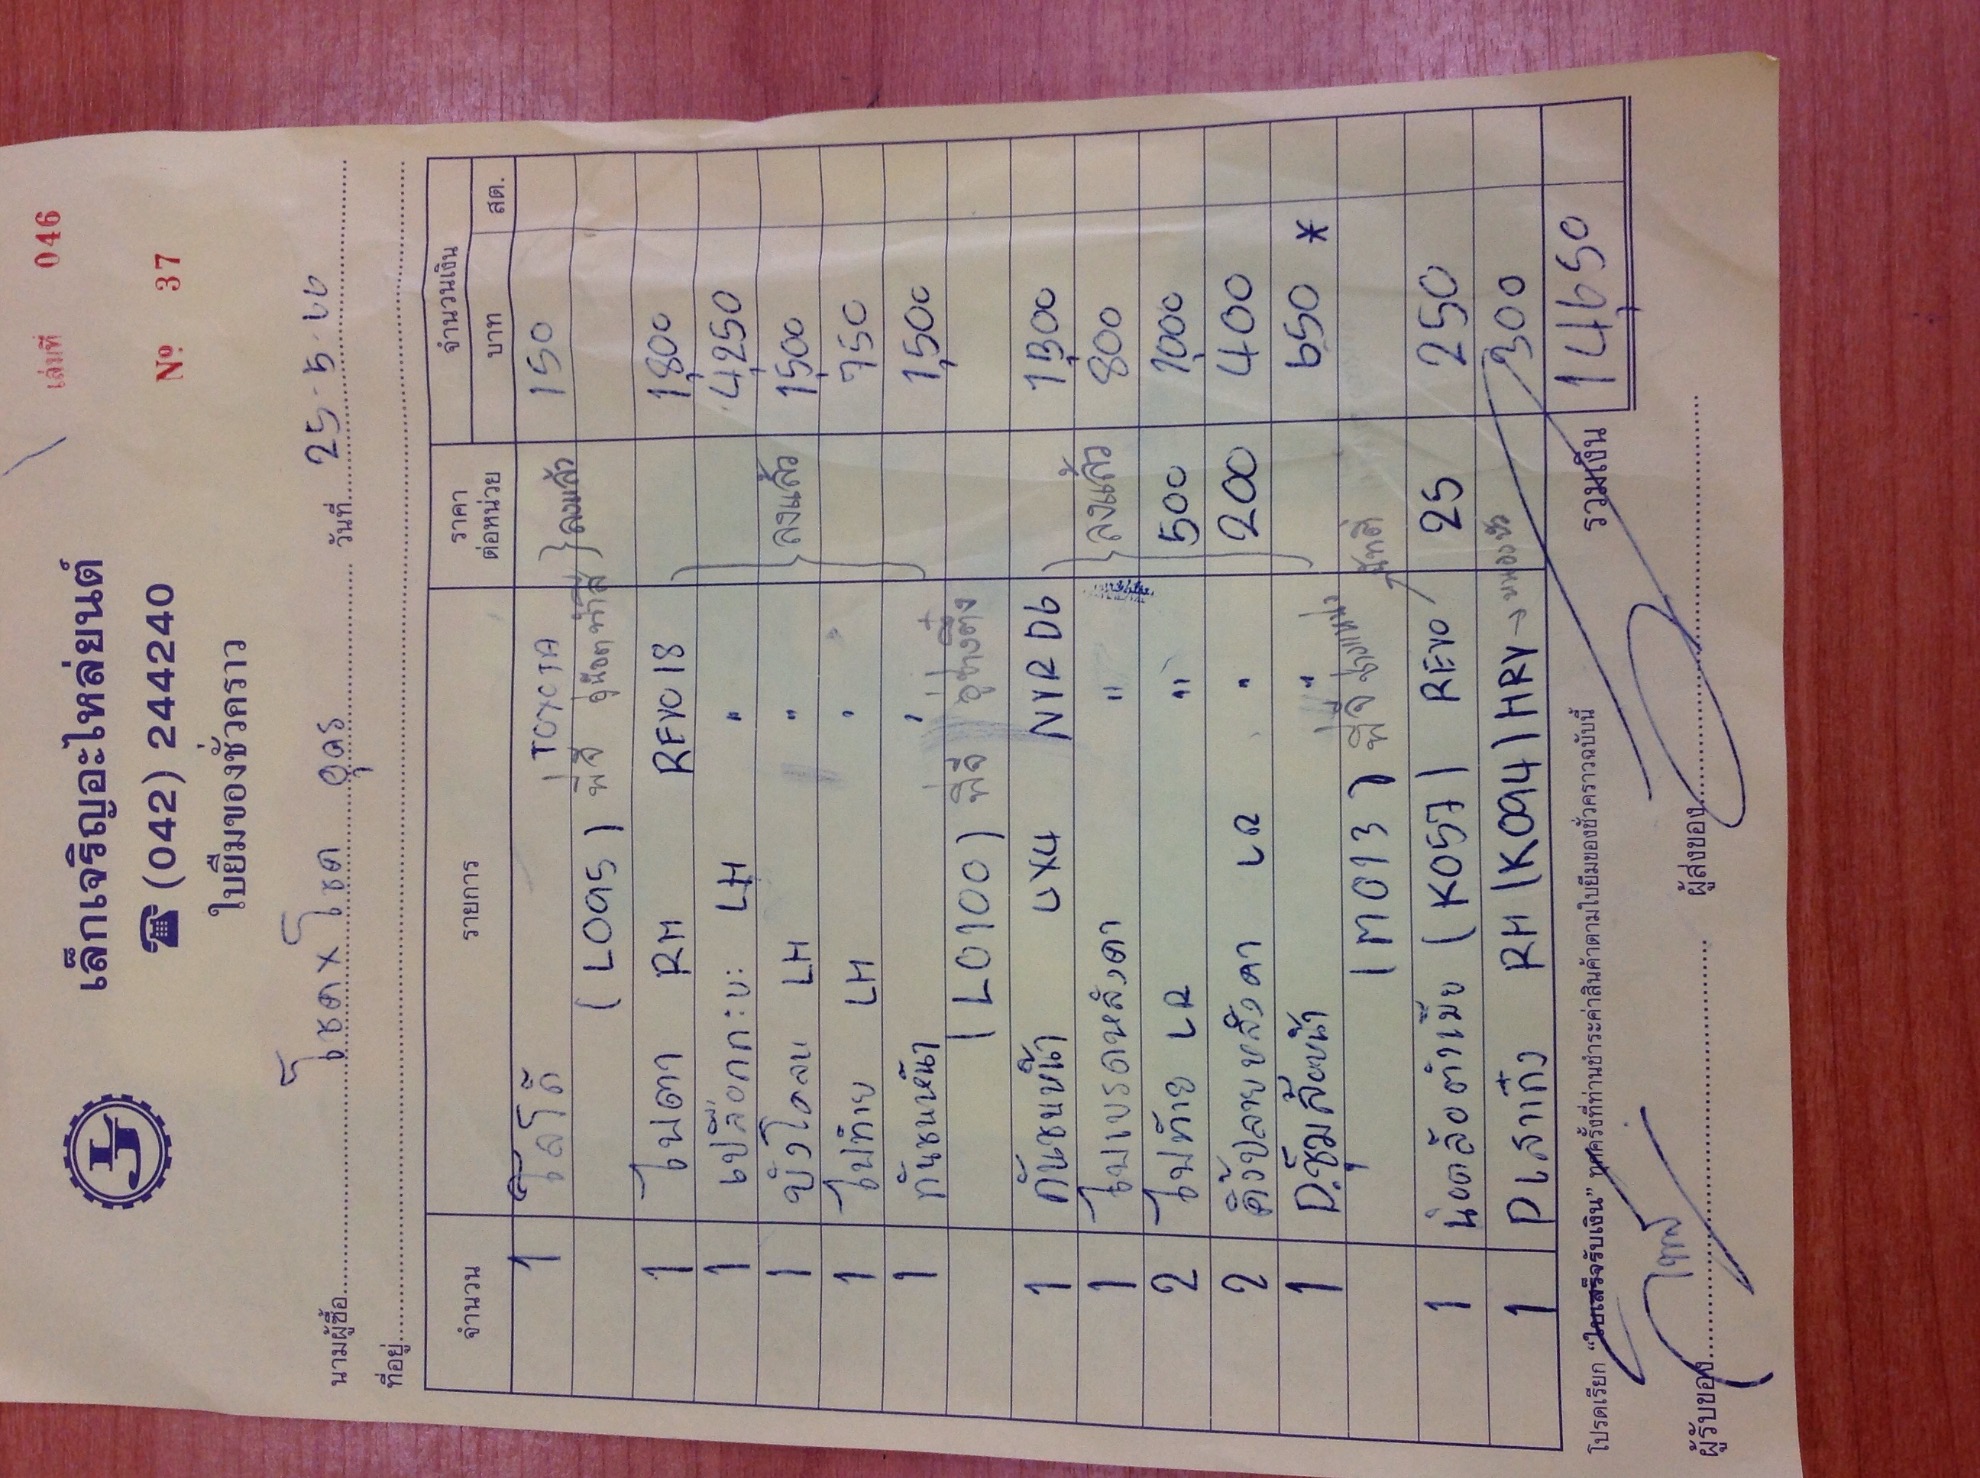 เล่มที่ 046
เล็กเจริญอะไหล่ยนต์
☎ (042) 244240
Nº 37
ใบยืมของชั่วคราว
นามผู้ซื้อ โชคxโชค อุดร วันที่ 25-5-66
ที่อยู่
จำนวน รายการ ราคาต่อหน่วย จำนวนเงิน
บาท สต.
1 โลโก้ TOYOTA 150
(L095) พี่จี ลงแล้ว
1 ไฟตา RH REVO 18 1,800
1 เปลือกกะบะ LH " 4,250
1 บังโคลน LH " ลงแล้ว 1,500
1 ไฟท้าย LH " 750
1 กันชนหน้า " 1,500
(L0100) พี่จี
1 กันชนหน้า UX4 NVR D6 1,300
1 ไฟเบรคหลังคา " ลงแล้ว 800
2 ไฟท้าย LR " 500 1,000
2 คิ้วปลายหลังคา LR " 200 400
1 P.ซุ้มล้อหน้า " 650 *
(M013) พี่จี
1 น๊อตล้อตัวเมีย (K057) REVO 25 250
1 Pเสาเก๋ง RH (K094) HRV 300
รวมเงิน 14,650
โปรดเรียก “ใบเสร็จรับเงิน” ทุกครั้งที่ท่านชำระค่าสินค้าตามใบยืมของชั่วคราวฉบับนี้
ผู้รับของ ผู้ส่งของ